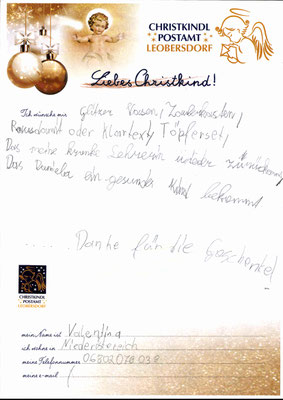 CHRISTKINDL
POSTAMT
LEOBERSDORF
Liebes Christkind!
Ich wünsche mir glitzer Vasen, Zauberkasten,
oder Klartext, Töpferset,
Das meine kranke Lehrerin wieder
Das Daniela ein gesundes Kind bekommt
..... Danke für die Geschenke!
CHRISTKINDL
POSTAMT
LEOBERSDORF
mein Name ist Valentina
ich wohne in Niederösterreich
meine Telefonnummer
meine e-mail /